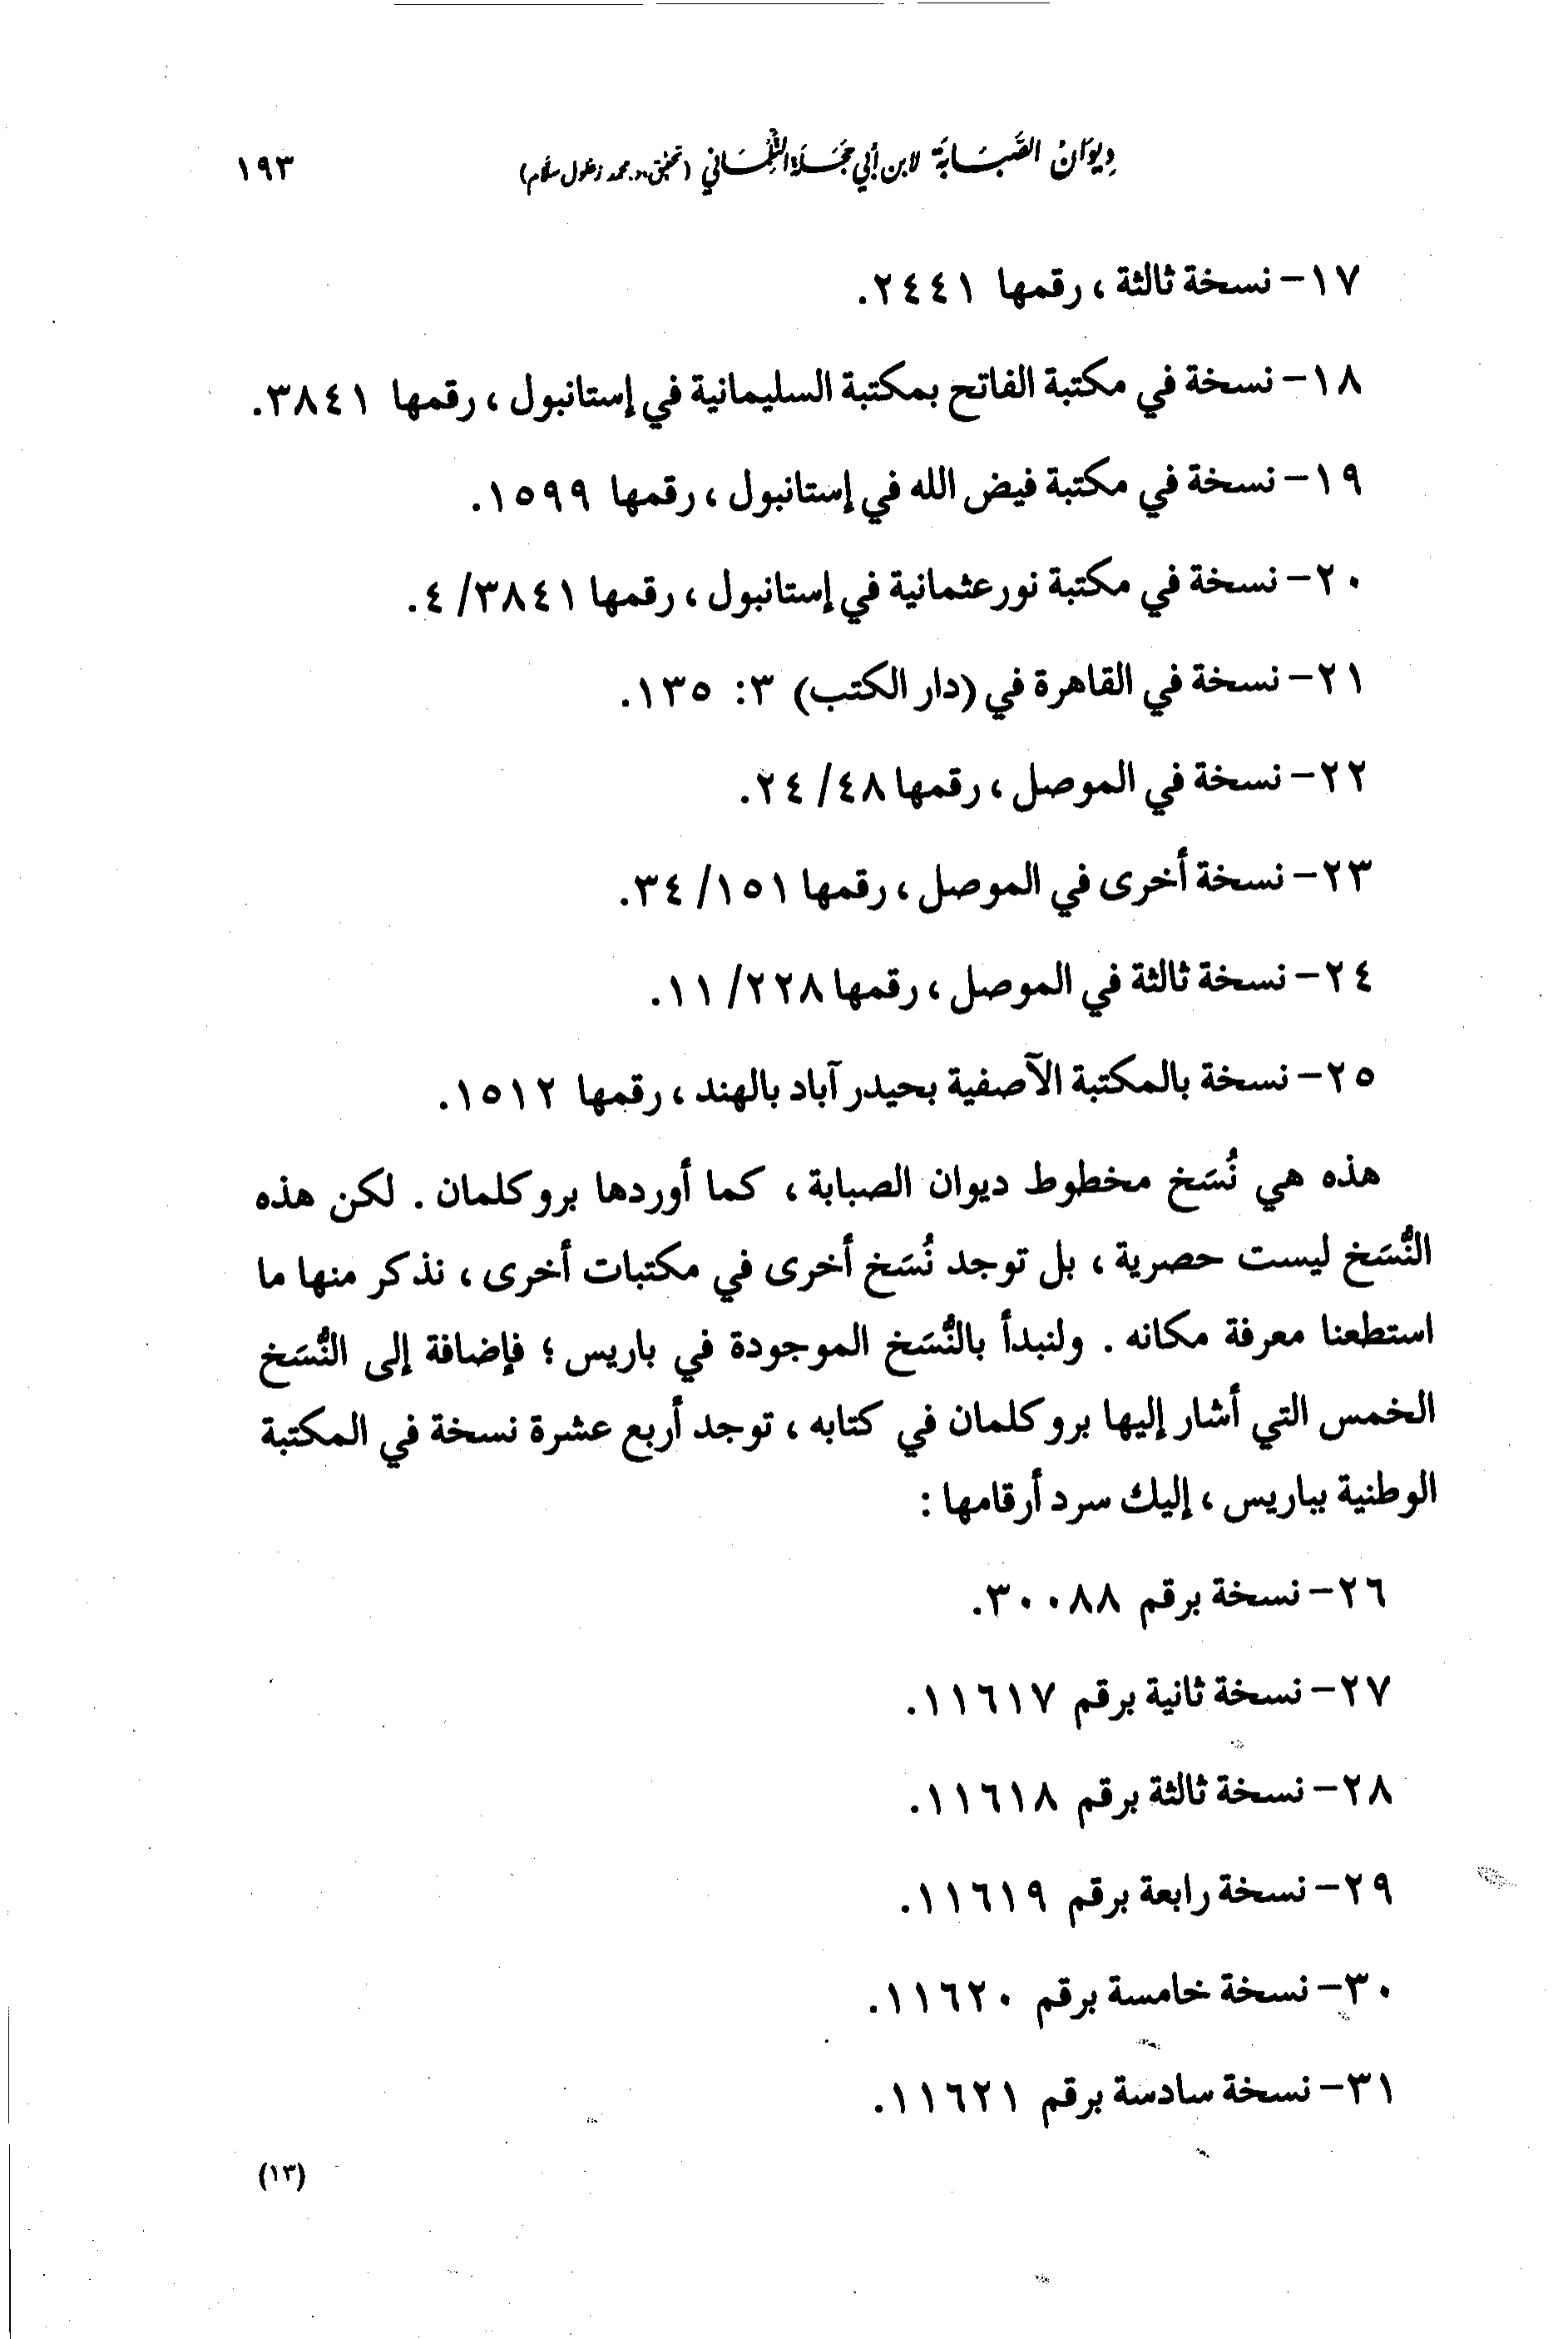 ديوان الصَّبَابَة لابن أبي حَجَلَة التِّلِمْسَاني (تحقيق د. محمد زغلول سلام) ١٩٣
١٧- نسخة ثالثة ، رقمها ٢٤٤١.
١٨- نسخة في مكتبة الفاتح بمكتبة السليمانية في إستانبول ، رقمها ٣٨٤١.
١٩- نسخة في مكتبة فيض الله في إستانبول ، رقمها ١٥٩٩.
٢٠- نسخة في مكتبة نورعثمانية في إستانبول ، رقمها ٤/٣٨٤١.
٢١- نسخة في القاهرة في (دار الكتب) ٣: ١٣٥.
٢٢- نسخة في الموصل ، رقمها ٢٤/٤٨.
٢٣- نسخة أخرى في الموصل ، رقمها ٣٤/١٥١.
٢٤- نسخة ثالثة في الموصل ، رقمها ١١/٢٢٨.
٢٥- نسخة بالمكتبة الآصفية بحيدر آباد بالهند ، رقمها ١٥١٢.
هذه هي نُسَخ مخطوط ديوان الصبابة ، كما أوردها بروكلمان . لكن هذه
النُّسَخ ليست حصرية ، بل توجد نُسَخ أخرى في مكتبات أخرى ، نذكر منها ما
استطعنا معرفة مكانه . ولنبدأ بالنُّسَخ الموجودة في باريس ؛ فإضافة إلى النُّسَخ
الخمس التي أشار إليها بروكلمان في كتابه ، توجد أربع عشرة نسخة في المكتبة
الوطنية بباريس ، إليك سرد أرقامها :
٢٦- نسخة برقم ٣٠٠٨٨.
٢٧- نسخة ثانية برقم ١١٦١٧.
٢٨- نسخة ثالثة برقم ١١٦١٨.
٢٩- نسخة رابعة برقم ١١٦١٩.
٣٠- نسخة خامسة برقم ١١٦٢٠.
٣١- نسخة سادسة برقم ١١٦٢١.
(١٣)